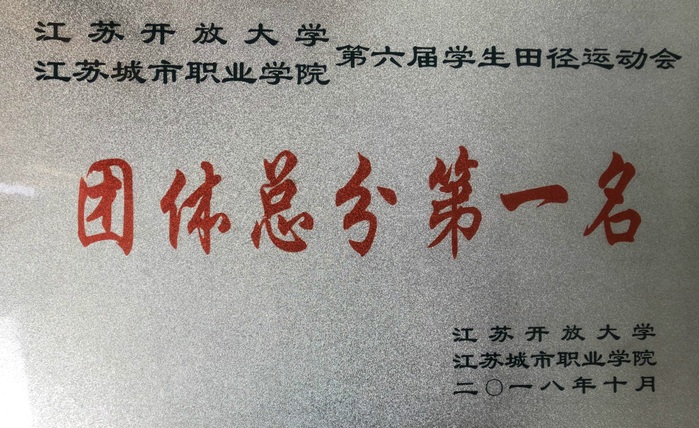 江苏开放大学
江苏城市职业学院
第六届学生田径运动会
团体总分第一名
江苏开放大学
江苏城市职业学院
二〇一八年十月